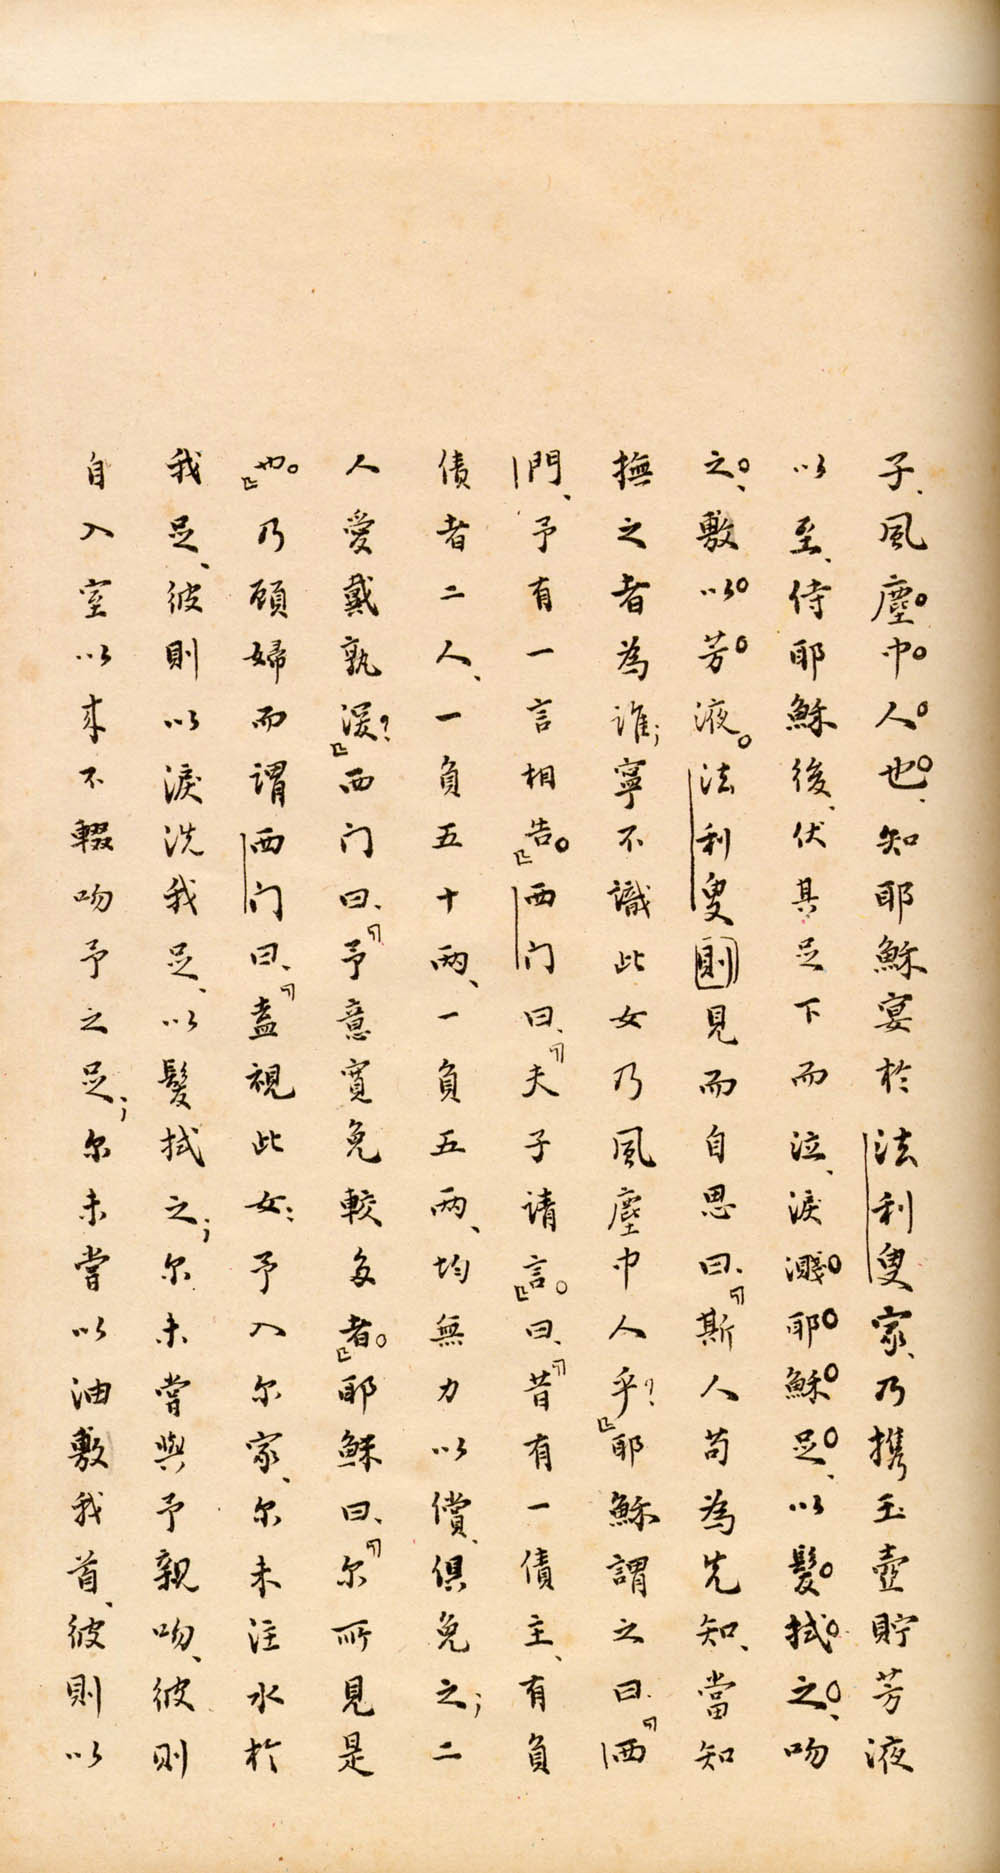 子、風塵中人也、知耶穌宴於法利叟家、乃攜玉壺貯芳液
以至、侍耶穌後、伏其足下而泣、淚濺耶穌足、以髮拭之、吻
之、敷以芳液。法利叟則見而自思曰、『斯人苟為先知、當知
撫之者為誰；寧不識此女乃風塵中人乎？』耶穌謂之曰、『西
門、予有一言相告。』西门曰、『夫子請言。』曰、『昔有一債主、有負
債者二人、一負五十兩、一負五兩、均無力以償、俱免之；二
人愛戴孰深？』西门曰、『予意實免較多者。』耶穌曰、『尔所見是
也。』乃顧婦而謂西门曰、『盍視此女：予入尔家、尔未注水於
我足、彼則以淚洗我足、以髮拭之；尔未嘗與予親吻、彼則
自入室以來不輟吻予之足；尔未嘗以油敷我首、彼則以